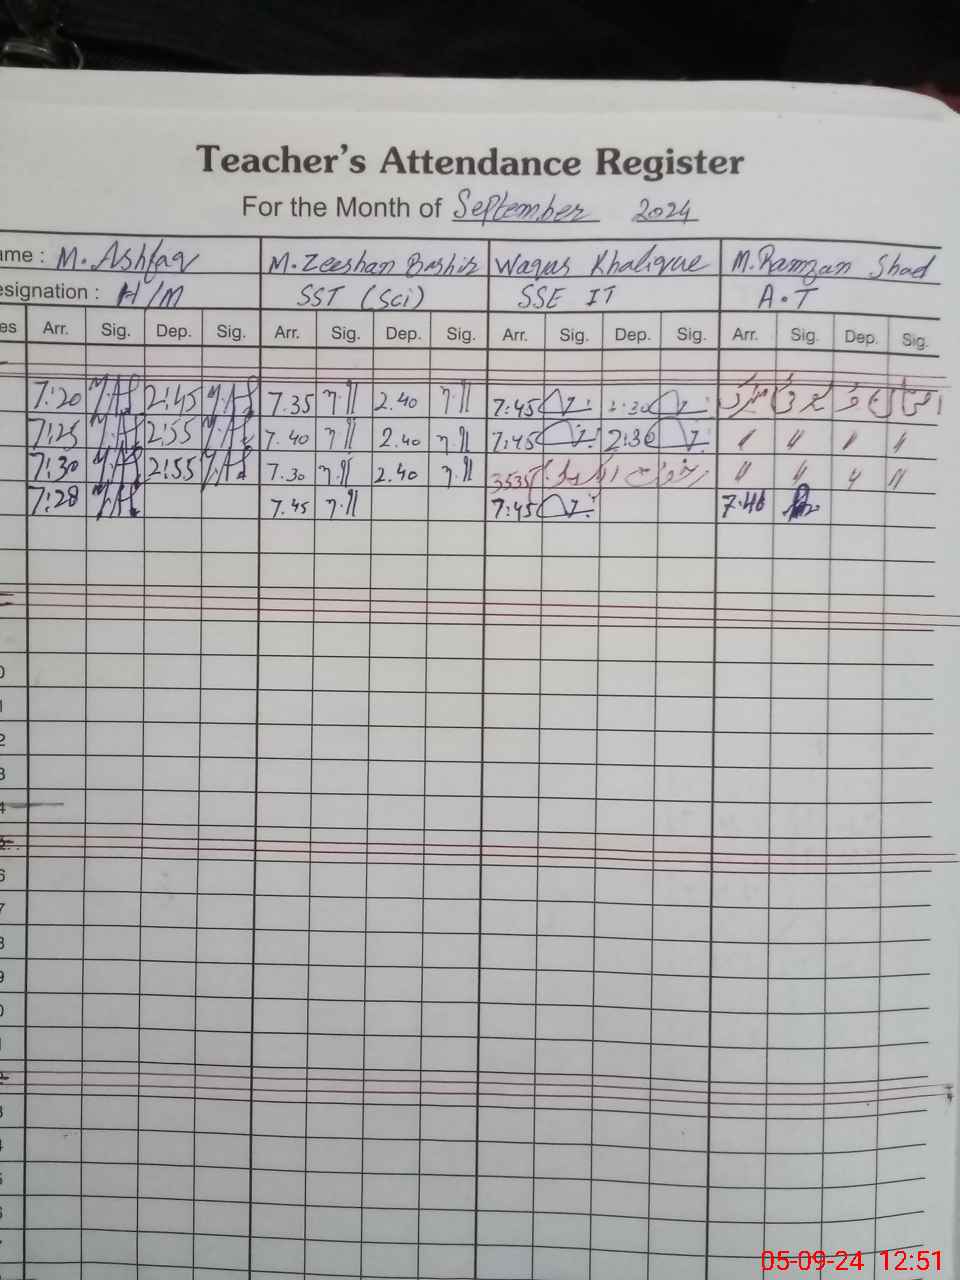 Teacher's Attendance Register
For the Month of September 2024
ame : M. Ashfaq M. Zeeshan Bashir Waqas Khalique M. Ramzan Shad
esignation : H/M SST (Sci) SSE IT A.T
es Arr. Sig. Dep. Sig. Arr. Sig. Dep. Sig. Arr. Sig. Dep. Sig. Arr. Sig. Dep. Sig.
7:20 2:45 7.35 2.40 7:45 2:30
7:25 2:55 7.40 2.40 7:45 2:30 " " " "
7:30 2:55 7.30 2.40 " " " "
7:28 7.45 7:45 7:46
0
1
2
3
4
6
7
8
9
0
1
3
4
5
6
05-09-24 12:51